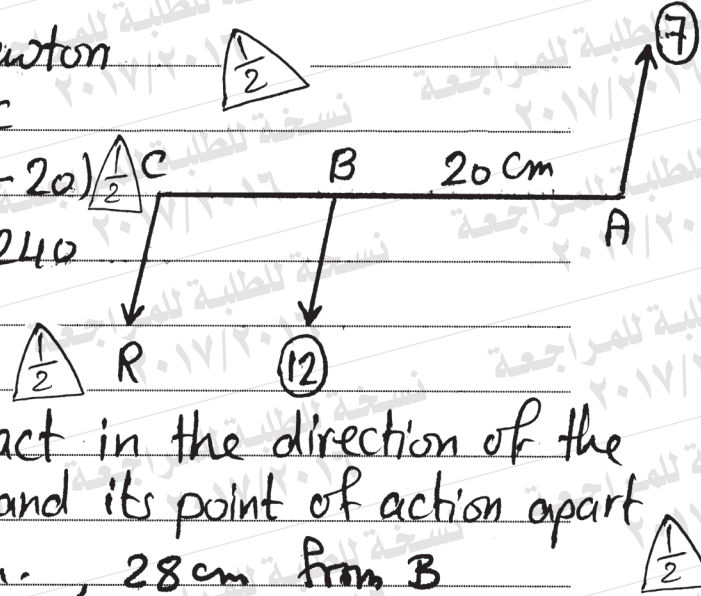 ewton 1/2 7
C
- 20) 1/2 C B 20 Cm
240 A
1/2 R 12
act in the direction of the
and its point of action apart
, 28 cm from B 1/2
نسخة للطلبة للمراجعة
٢٠١٧/٢٠١٦